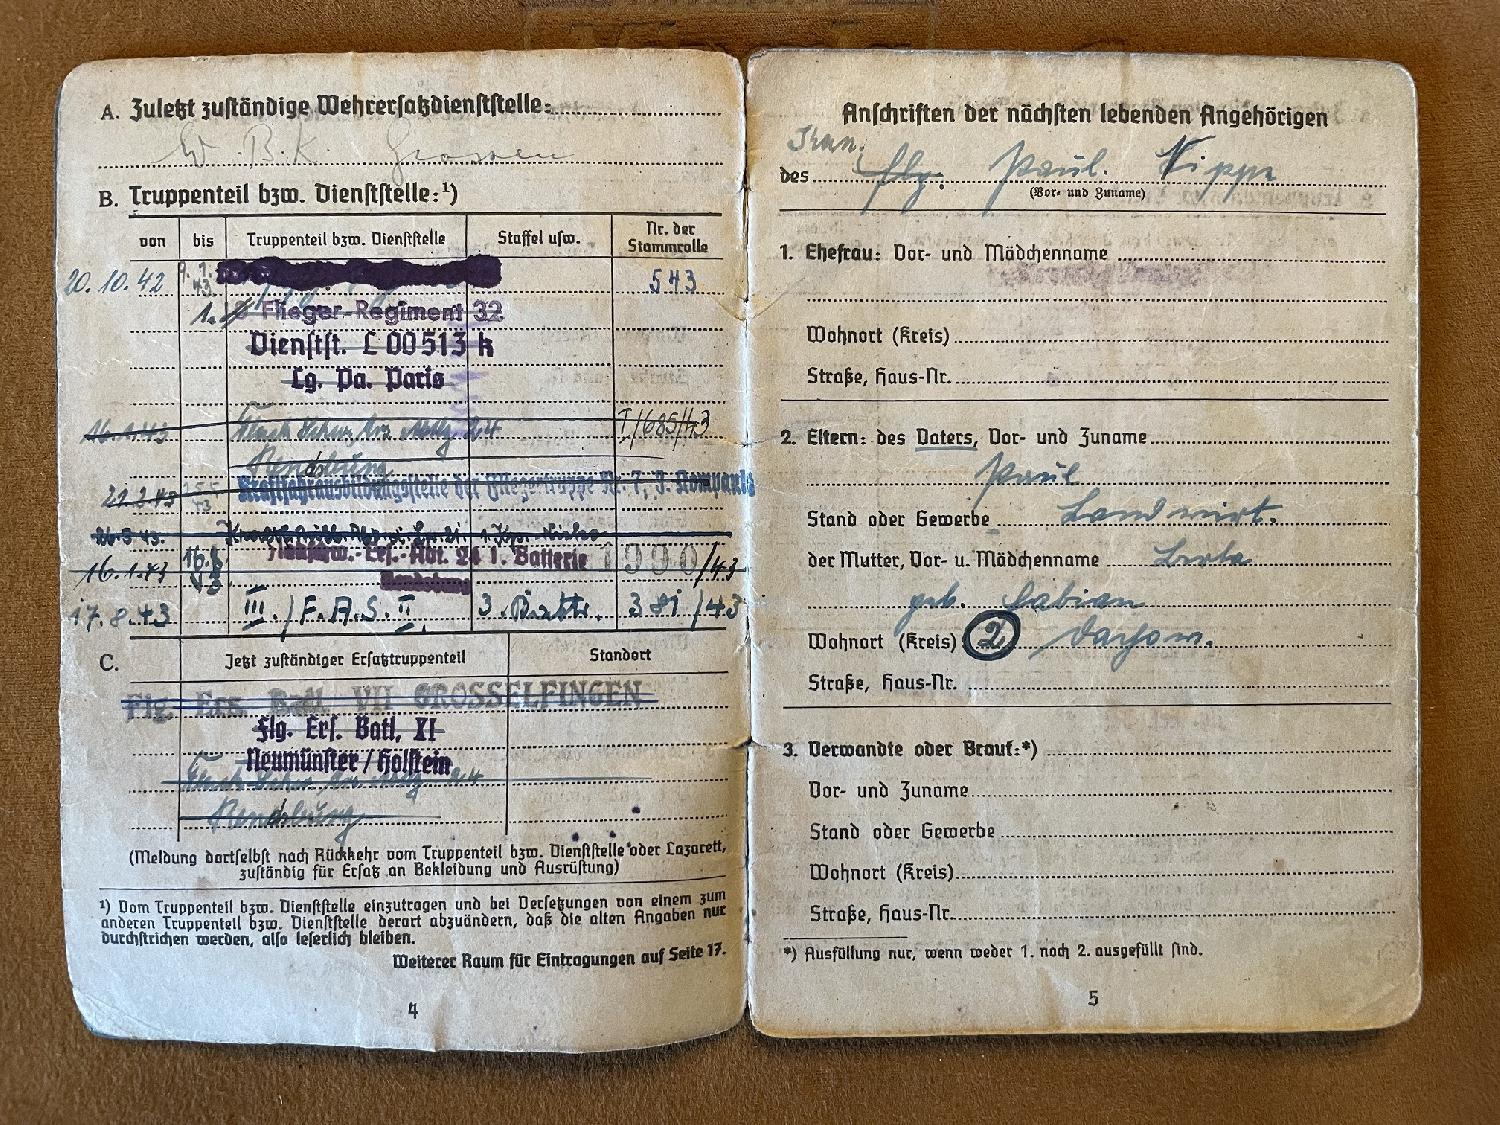 A. Zuletzt zuständige Wehrersatzdienststelle:
W. B. K.
B. Truppenteil bzw. Dienststelle:¹)
von bis Truppenteil bzw. Dienststelle Staffel usw. Nr. der Stammrolle
20.10.42 543
Flieger-Regiment 32
Dienstst. L 00513 k
Lg. Pa. Paris
16.1.43 I/685/43
Rendsburg
Kraftfahrausbildungsstelle der Fliegertruppe Nr. 7, 3. Kompanie
16.1.43 Ers.-Abt. 24 1. Batterie 1990/43
Rendsburg
17.8.43 III./F.A.S. II 3. Battr. 381/43
C. Jetzt zuständiger Ersatztruppenteil Standort
Flg. Ers. Batl. VII GROSSELFINGEN
Flg. Ers. Batl. XI
Neumünster/Holstein
Rendsburg
(Meldung dortselbst nach Rückkehr vom Truppenteil bzw. Dienststelle oder Lazarett,
zuständig für Ersatz an Bekleidung und Ausrüstung)
¹) Vom Truppenteil bzw. Dienststelle einzutragen und bei Versetzungen von einem zum
anderen Truppenteil bzw. Dienststelle derart abzuändern, daß die alten Angaben nur
durchstrichen werden, also leserlich bleiben.
Weiterer Raum für Eintragungen auf Seite 17.
4
Anschriften der nächsten lebenden Angehörigen
des Flg. Paul
(Vor- und Zuname)
1. Ehefrau: Vor- und Mädchenname
Wohnort (Kreis)
Straße, Haus-Nr.
2. Eltern: des Vaters, Vor- und Zuname
Paul
Stand oder Gewerbe Landwirt.
der Mutter, Vor- u. Mädchenname
geb. Fabian
Wohnort (Kreis) 2
Straße, Haus-Nr.
3. Verwandte oder Braut:*)
Vor- und Zuname
Stand oder Gewerbe
Wohnort (Kreis)
Straße, Haus-Nr.
*) Ausfüllung nur, wenn weder 1. noch 2. ausgefüllt sind.
5